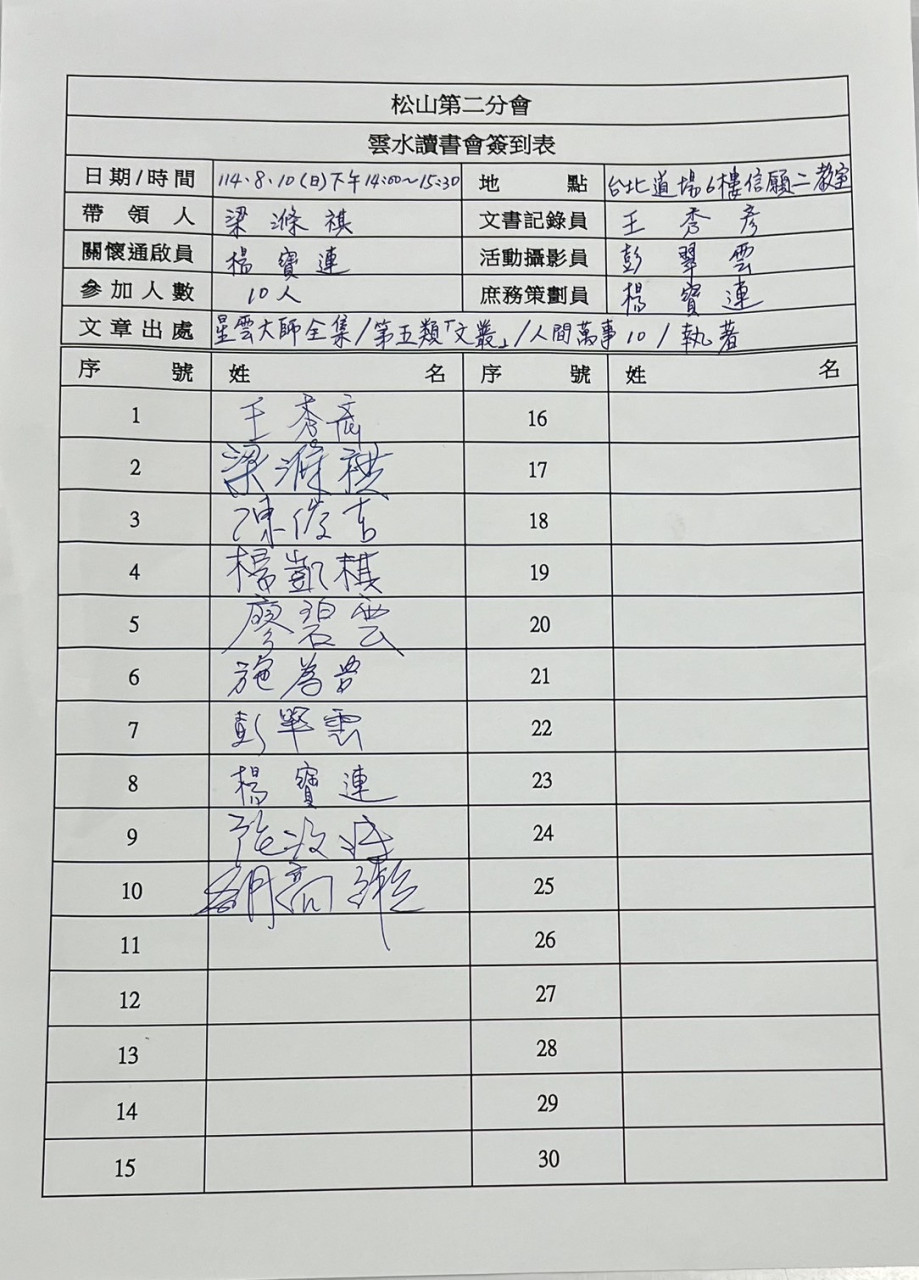 松山第二分會
雲水讀書會簽到表
日期/時間 114.8.10(日)下午14:00~15:30 地點 台北道場6樓信願二教室
帶領人 梁滌祺 文書記錄員 王秀彥
關懷通啟員 楊寶連 活動攝影員 彭翠雲
參加人數 10人 庶務策劃員 楊寶連
文章出處 星雲大師全集/第五類「文叢」/人間萬事10/執著
序號 姓名 序號 姓名
1 王秀彥 16
2 梁滌祺 17
3 陳俊吉 18
4 楊凱棋 19
5 廖碧雲 20
6 施為 21
7 彭翠雲 22
8 楊寶連 23
9 張 24
10 胡 25
11 26
12 27
13 28
14 29
15 30